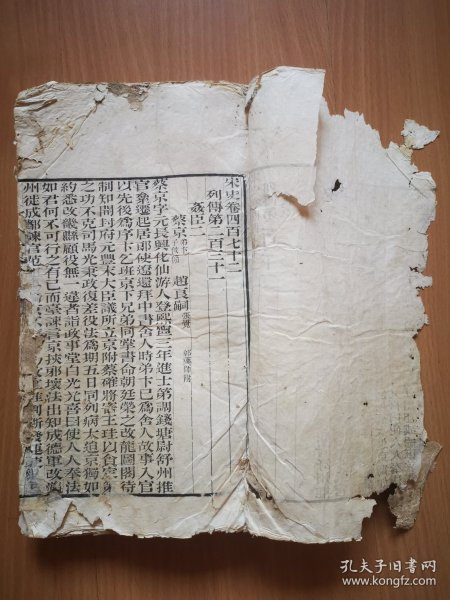 宋史卷四百七十二
列傳第二百三十一
姦臣二
蔡京 弟卞 子攸 趙良嗣 張覺 郭藥師附
蔡京字元長興化仙游人登熙寧三年進士第調錢塘尉舒州推
官累遷起居郎使遼還拜中書舍人時弟卞已為舍人故事入官
以先後為序卞乞班京下兄弟同掌書命朝廷榮之改龍圖閣待
制知開封府元豐末大臣議所立京附蔡確將害王珪以貪定策
之功不克司馬光秉政復差役法為期五日同列病太迫京獨如
約悉改畿縣顧役無一違者詣政事堂白光光喜曰使人人奉法
如君何不可行之有已而臺諫言京挾邪壞法出知成德軍改瀛
州徙成都諫官范
孔夫子旧书网
www.kongfz.com